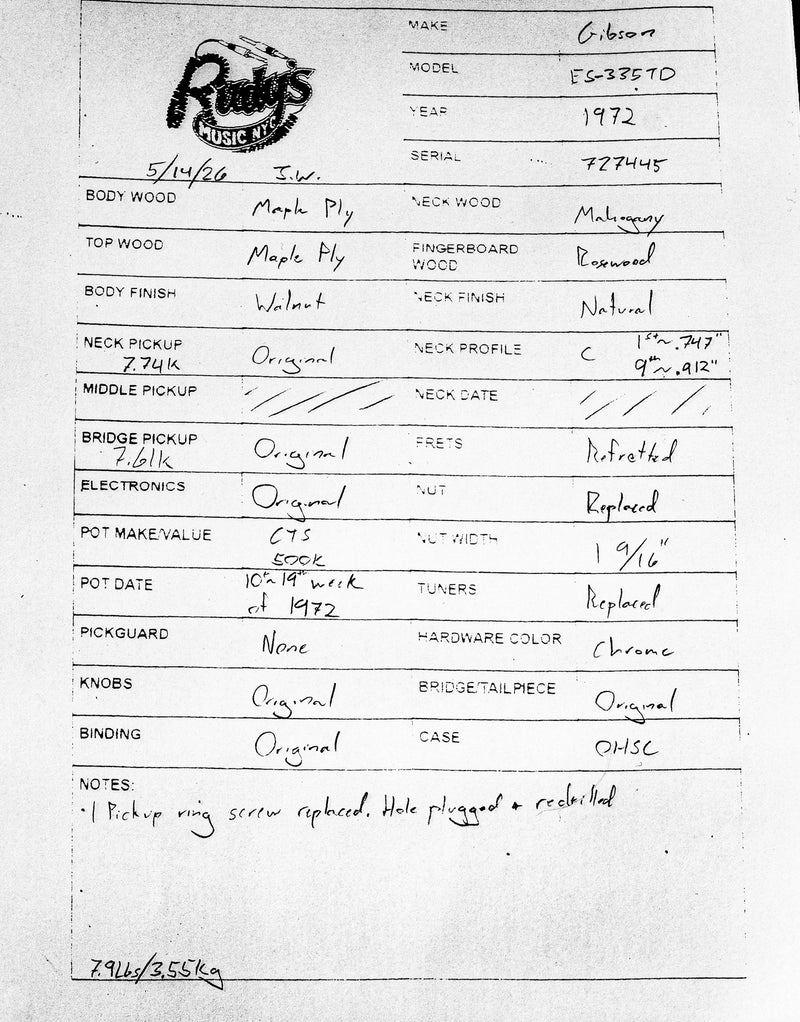 Rudy's
MUSIC NYC
5/14/26 J.W.
MAKE Gibson
MODEL ES-335TD
YEAR 1972
SERIAL 727445
BODY WOOD Maple Ply NECK WOOD Mahogany
TOP WOOD Maple Ply FINGERBOARD WOOD Rosewood
BODY FINISH Walnut NECK FINISH Natural
NECK PICKUP 7.74K Original NECK PROFILE C 1st ~ .747"
9th ~ .912"
MIDDLE PICKUP //// NECK DATE ////
BRIDGE PICKUP 7.61K Original FRETS Refretted
ELECTRONICS Original NUT Replaced
POT MAKE/VALUE CTS 500K NUT WIDTH 1 9/16"
POT DATE 10th ~ 19th week of 1972 TUNERS Replaced
PICKGUARD None HARDWARE COLOR Chrome
KNOBS Original BRIDGE/TAILPIECE Original
BINDING Original CASE OHSC
NOTES:
· 1 Pickup ring screw replaced. Hole plugged + redrilled
7.9Lbs/3.55Kg